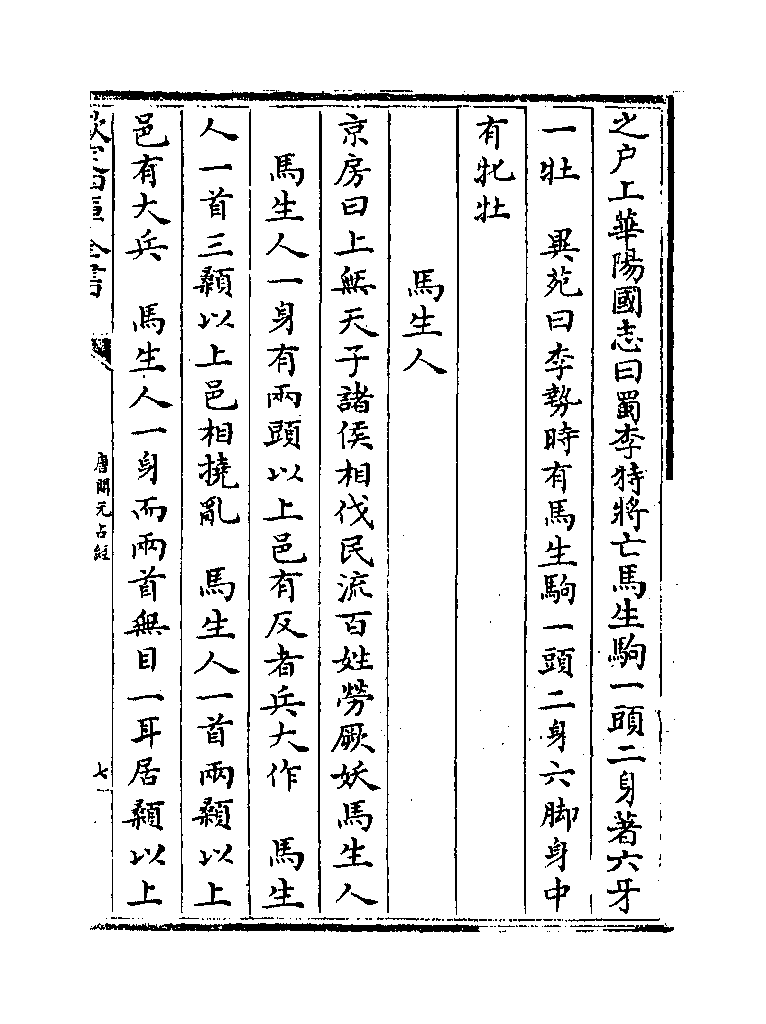 之户上華陽國志曰蜀李特將亡馬生駒一頭二身著六牙
一牡　異苑曰李勢時有馬生駒一頭二身六脚身中
有牝牡
馬生人
京房曰上無天子諸侯相伐民流百姓勞厥妖馬生人
馬生人一身有兩頭以上邑有反者兵大作　馬生
人一首三顙以上邑相撓亂　馬生人一首兩顙以上
邑有大兵　馬生人一身而兩首無目一耳居顙以上
欽定四庫全書
唐開元占經
七